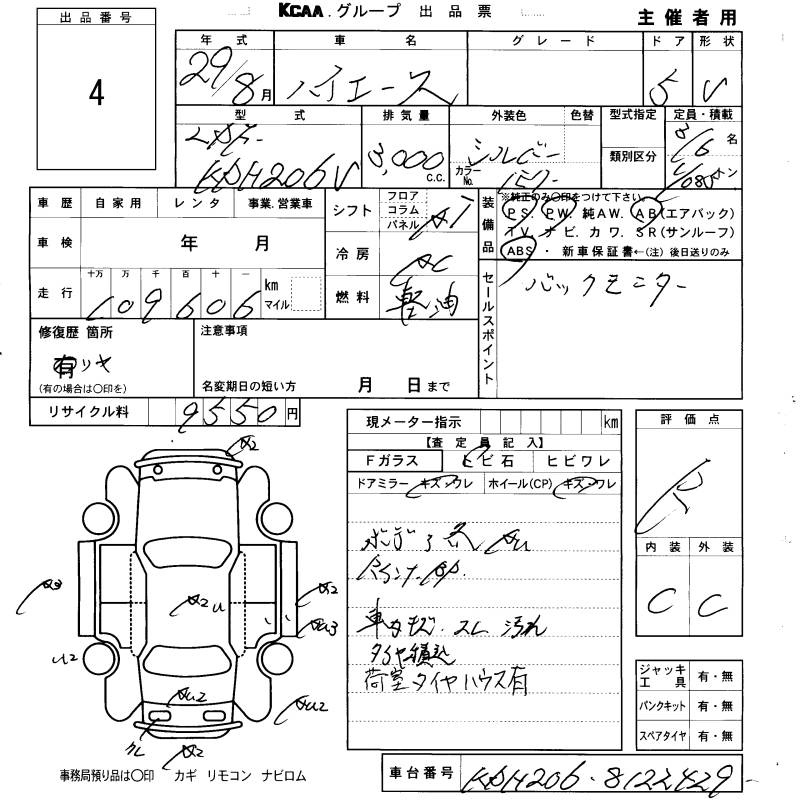 KCAA.グループ 出品票
主催者用
出品番号
4
年式 車名 グレード ドア 形状
29/8月 ハイエース 5 V
型式 排気量 外装色 色替 型式指定 定員・積載
LDF-
KDH206V 3,000 C.C. シルバー カラーNo. 類別区分 3/6名
トン
車歴 自家用 レンタ 事業.営業車
シフト フロア コラム パネル AT
装備品 ※純正のみ○印をつけて下さい。
PS. PW. 純AW. AB(エアバック)
TV. ナビ. カワ. SR(サンルーフ)
ABS ・ 新車保証書←(注)後日送りのみ
車検 年 月
冷房 AC
走行 十万 万 千 百 十 一 km マイル
109606
燃料 軽油
セールスポイント バックモニター
修復歴 箇所
有 リヤ
(有の場合は○印を)
注意事項
名変期日の短い方 月 日まで
リサイクル料 9550円
現メーター指示 km
【査定員記入】
Fガラス ヒビ石 ヒビワレ
ドアミラー キズ・ワレ ホイール(CP) キズ・ワレ
評価点
R
内装 外装
C C
ボデース AU
車内キズ. スレ 汚れ
タイヤ積込
荷室タイヤハウス有
A2
A2 U
A3
A2
AU3
U2
AU2
AU2
A2
ジャッキ工具 有・無
パンクキット 有・無
スペアタイヤ 有・無
事務局預り品は○印 カギ リモコン ナビロム
車台番号 KDH206-8122429-